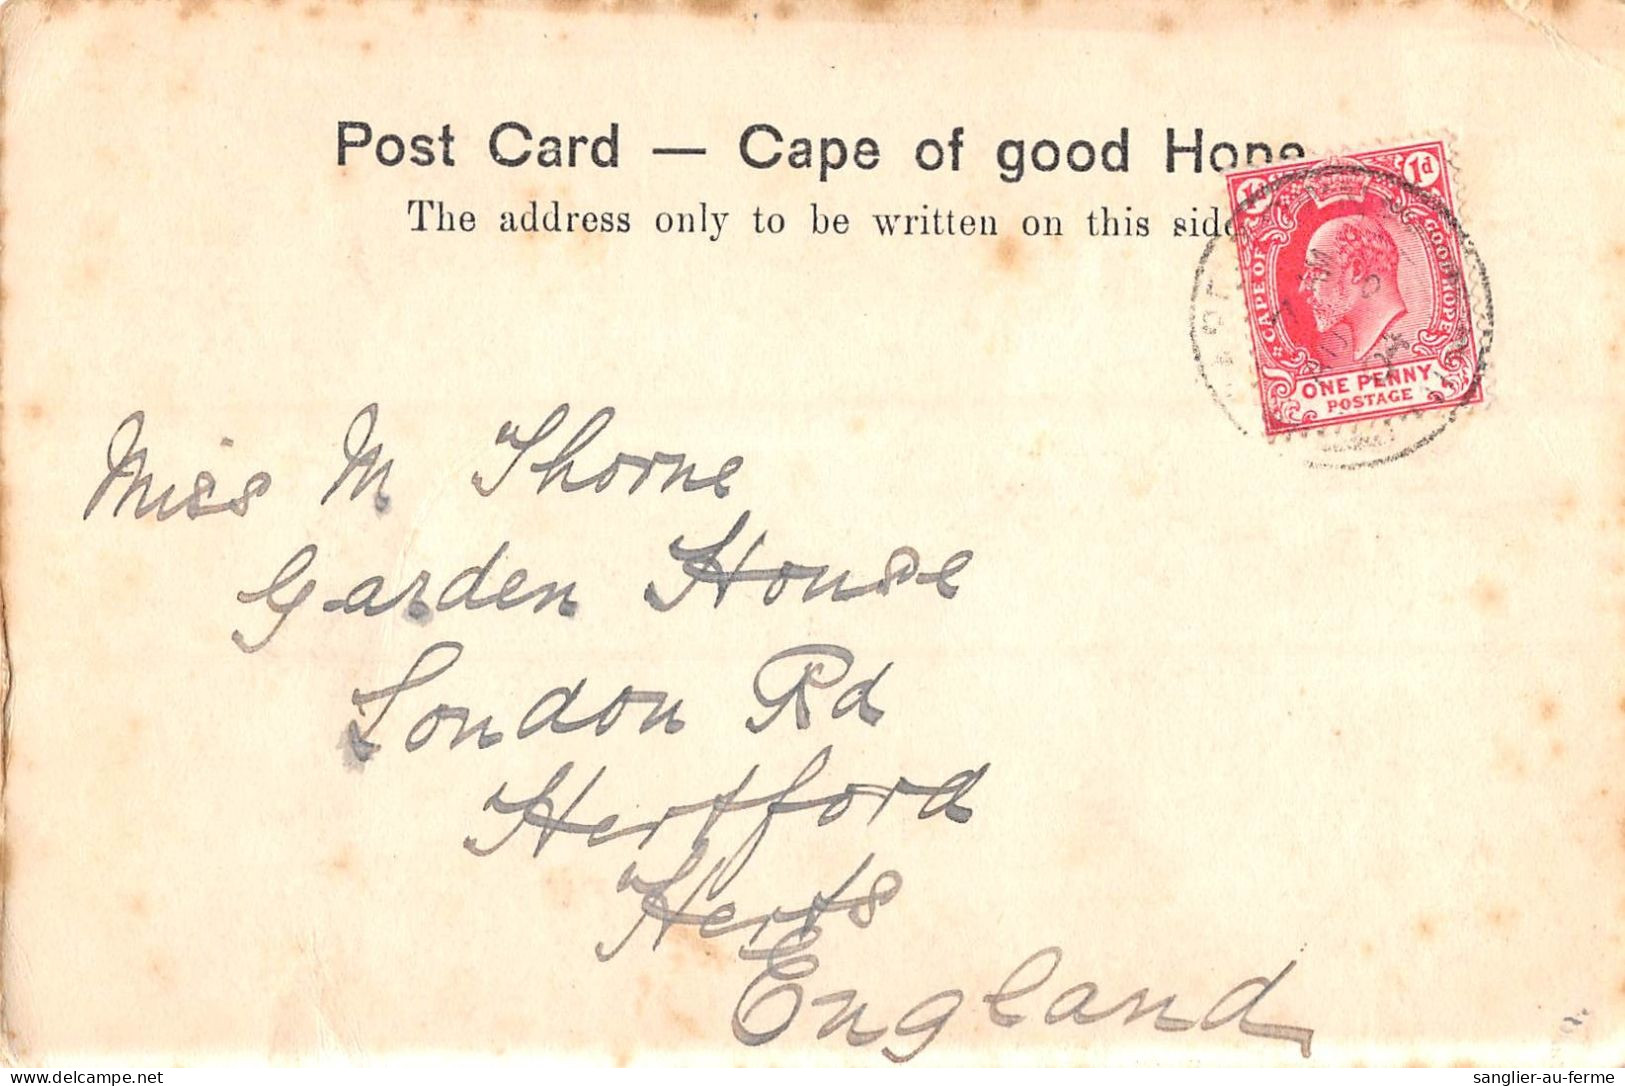 Post Card — Cape of good Hope
The address only to be written on this side
1d 1d
CAPE OF GOOD HOPE
ONE PENNY
POSTAGE
Miss M Thorne
Garden House
London Rd
Hertford
Herts
England
sanglier-au-ferme